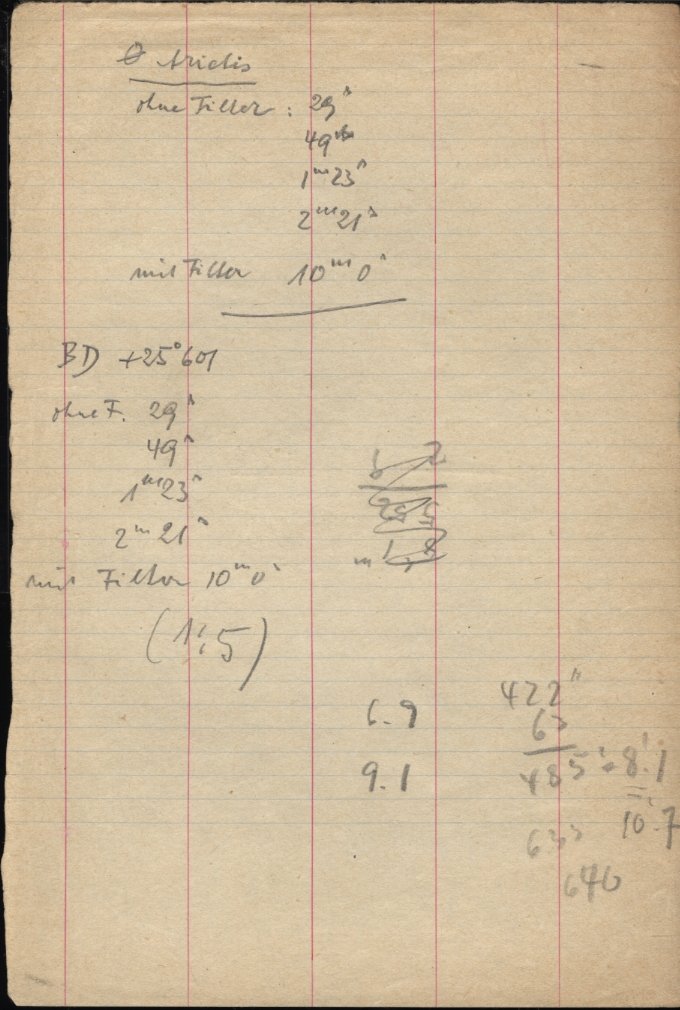 θ Arietis
ohne Filter: 29ˢ
49ˢ
1ᵐ23ˢ
2ᵐ21ˢ
mit Filter 10ᵐ0ˢ
BD +25°601
ohne F. 29ˢ
49ˢ
1ᵐ23ˢ
2ᵐ21ˢ
mit Filter 10ᵐ0ˢ
(1:5)
422"
6.9 63
9.1 485 8.1
10.7
633
640